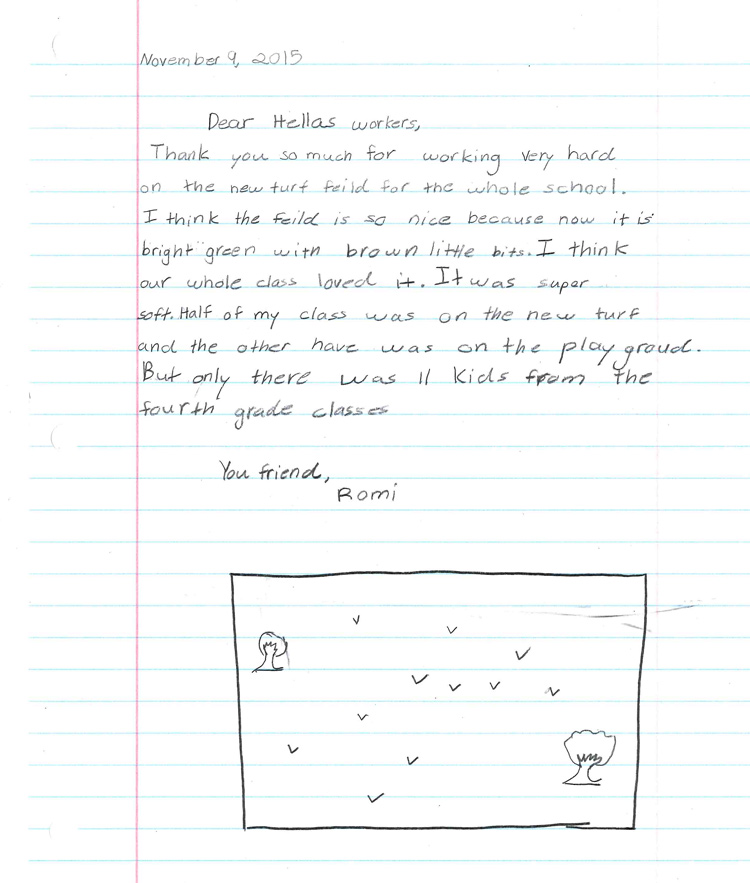 November 9, 2015
Dear Hellas workers,
Thank you so much for working very hard
on the new turf feild for the whole school.
I think the feild is so nice because now it is
bright green with brown little bits. I think
our whole class loved it. It was super
soft. Half of my class was on the new turf
and the other have was on the play groud.
But only there was 11 kids from the
fourth grade classes
You friend,
Romi